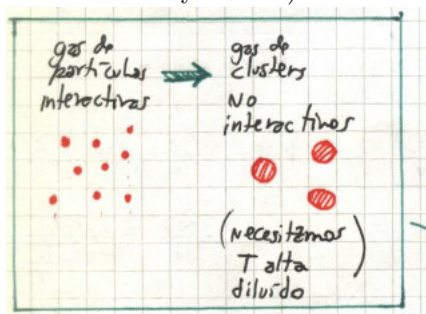 gas de
partículas
interactivas
gas de
clusters
NO
interactivos
(Necesitamos
T alta
diluído)